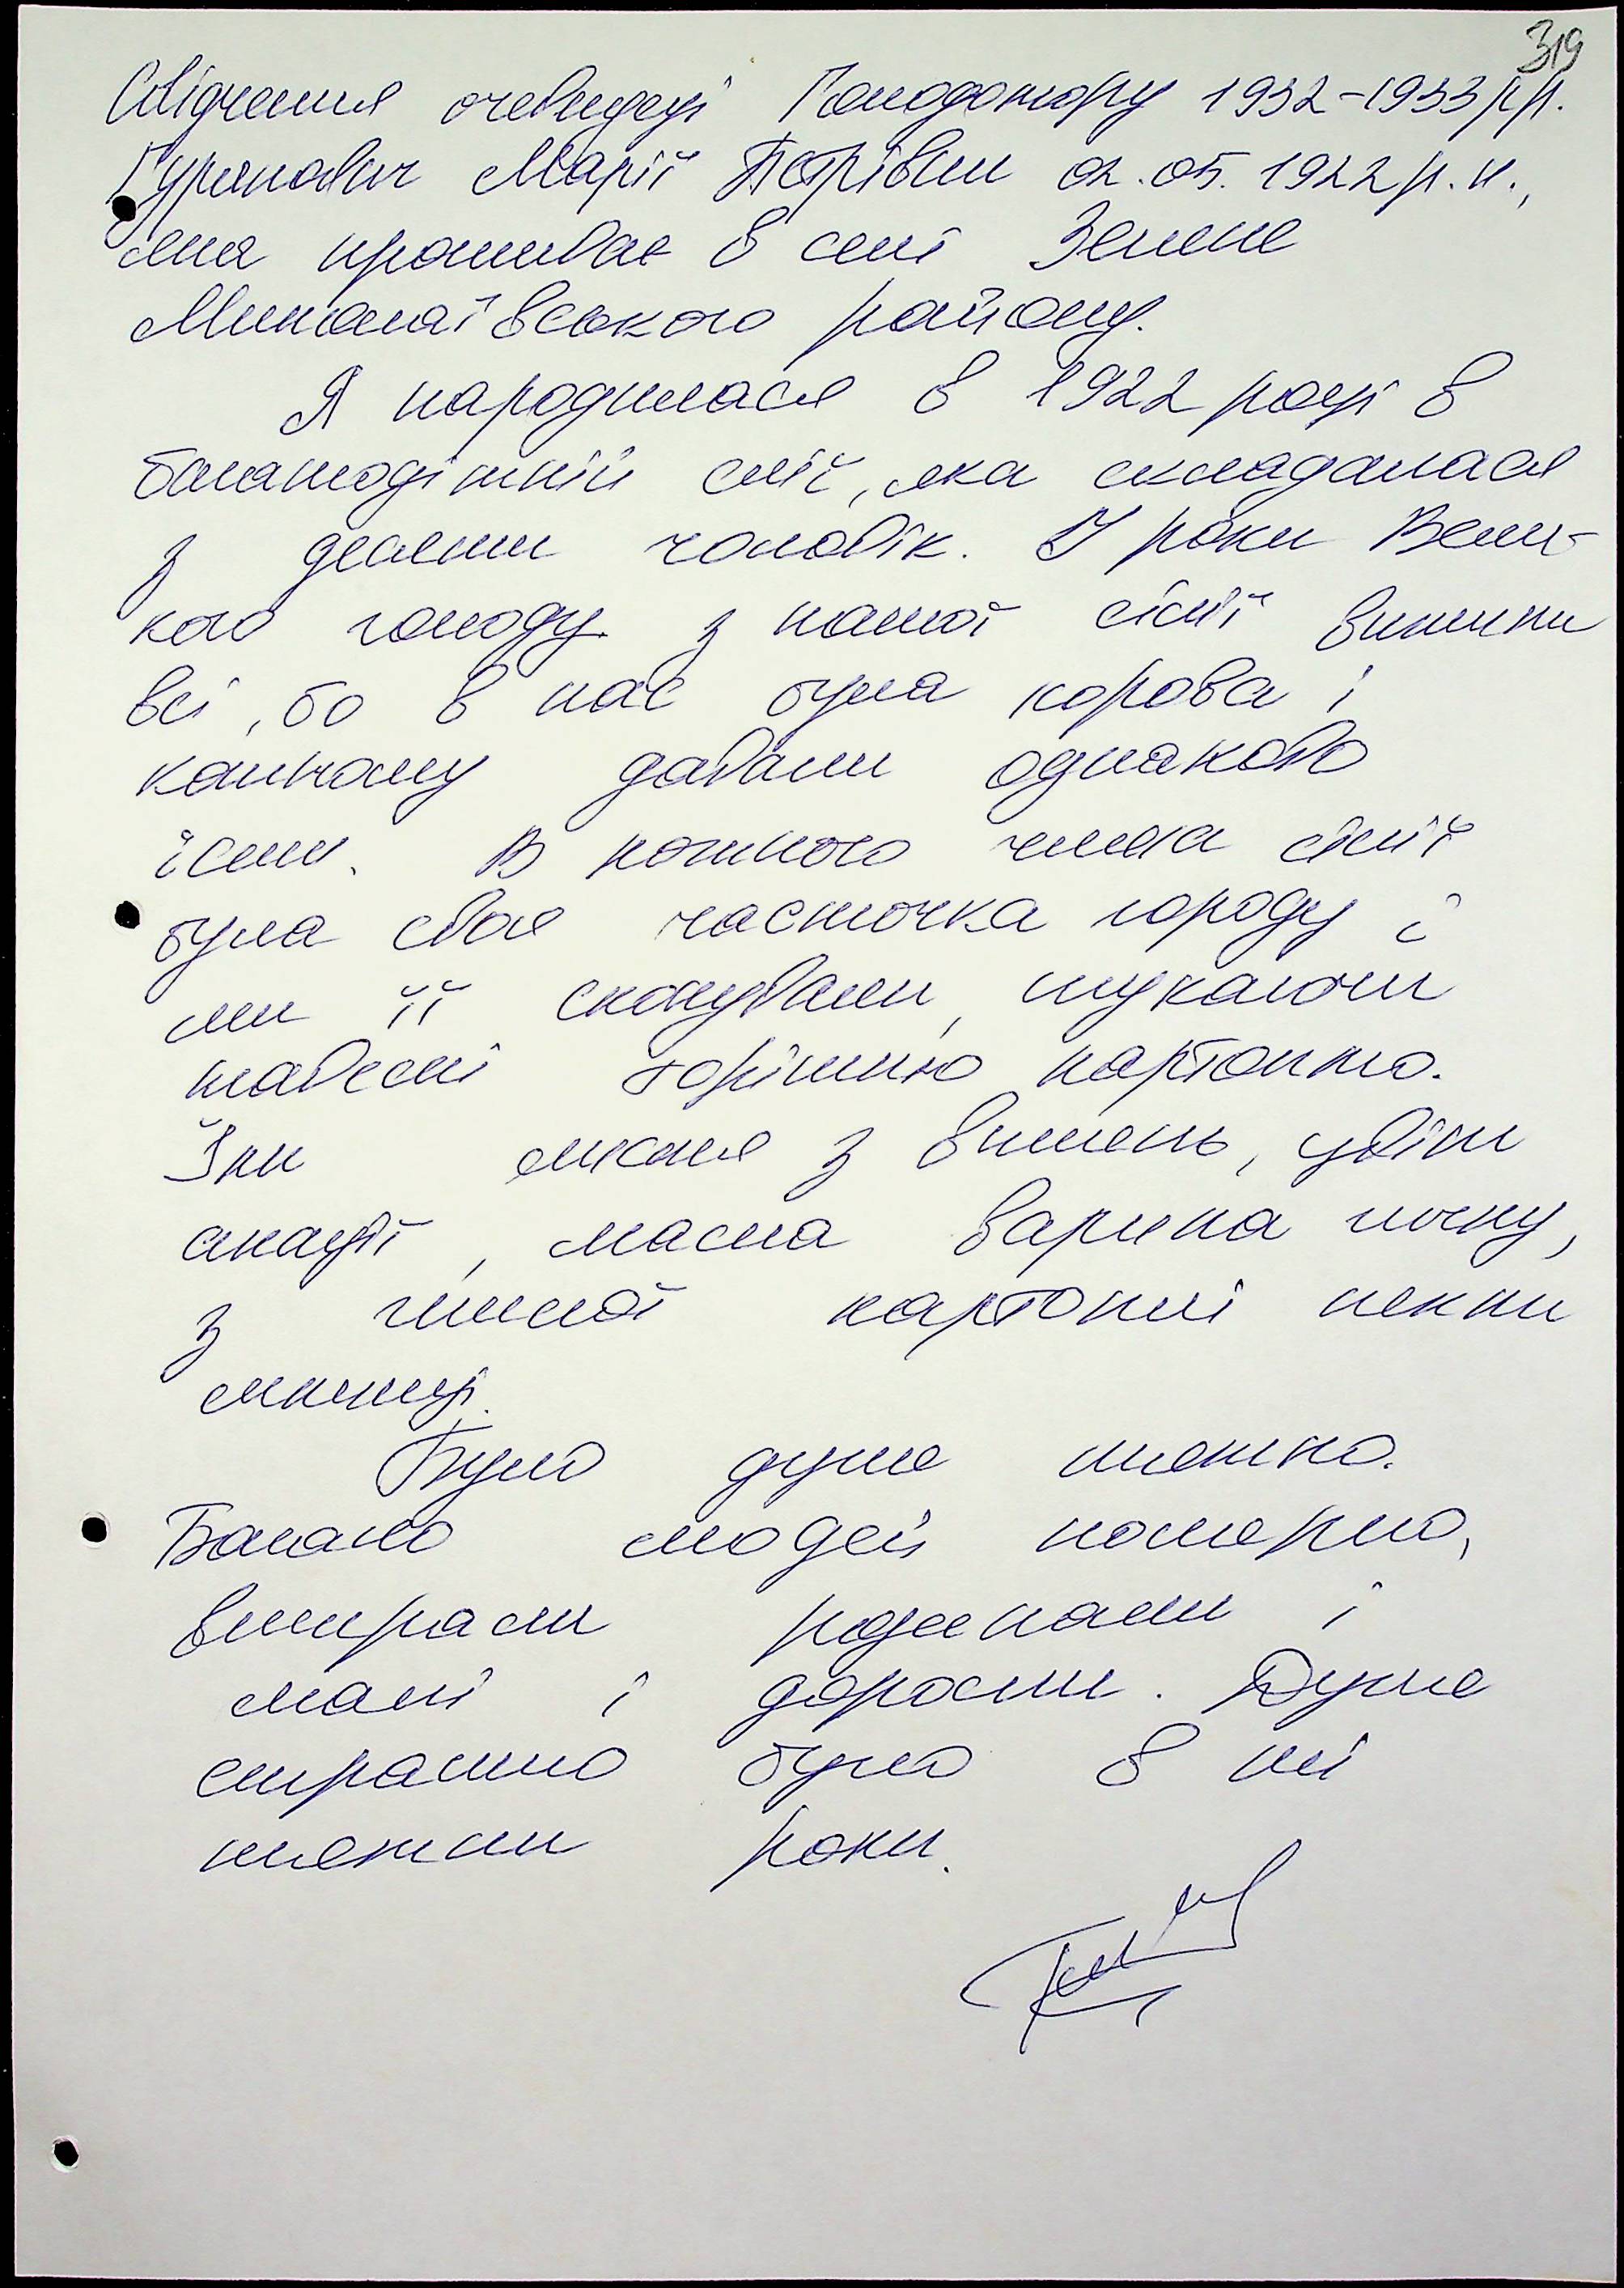 319
Свідчення очевидці Голодомору 1932-1933 рр.
Марії Петрівни 02.05.1922 р.н.,
яка проживає в селі Зелене
Миколаївського району.
Я народилася в 1922 році в
багатодітній сім'ї, яка складалася
з десяти чоловік. У роки Вели-
кого голоду з нашої сім'ї вижили
всі, бо в нас була корова і
кожному давали однаково
їсти. В кожного члена сім'ї
була своя часточка городу і
ми її скопували, шукаючи
навесні торішню картоплю.
Їли листя з вишень, цвіти
акації, мама варила гичку,
з гнилої картоплі пекли
млинці.
Було дуже тяжко.
Багато людей померло,
вмирали родинами і
малі і дорослі. Дуже
страшно було в ті
тяжкі роки.